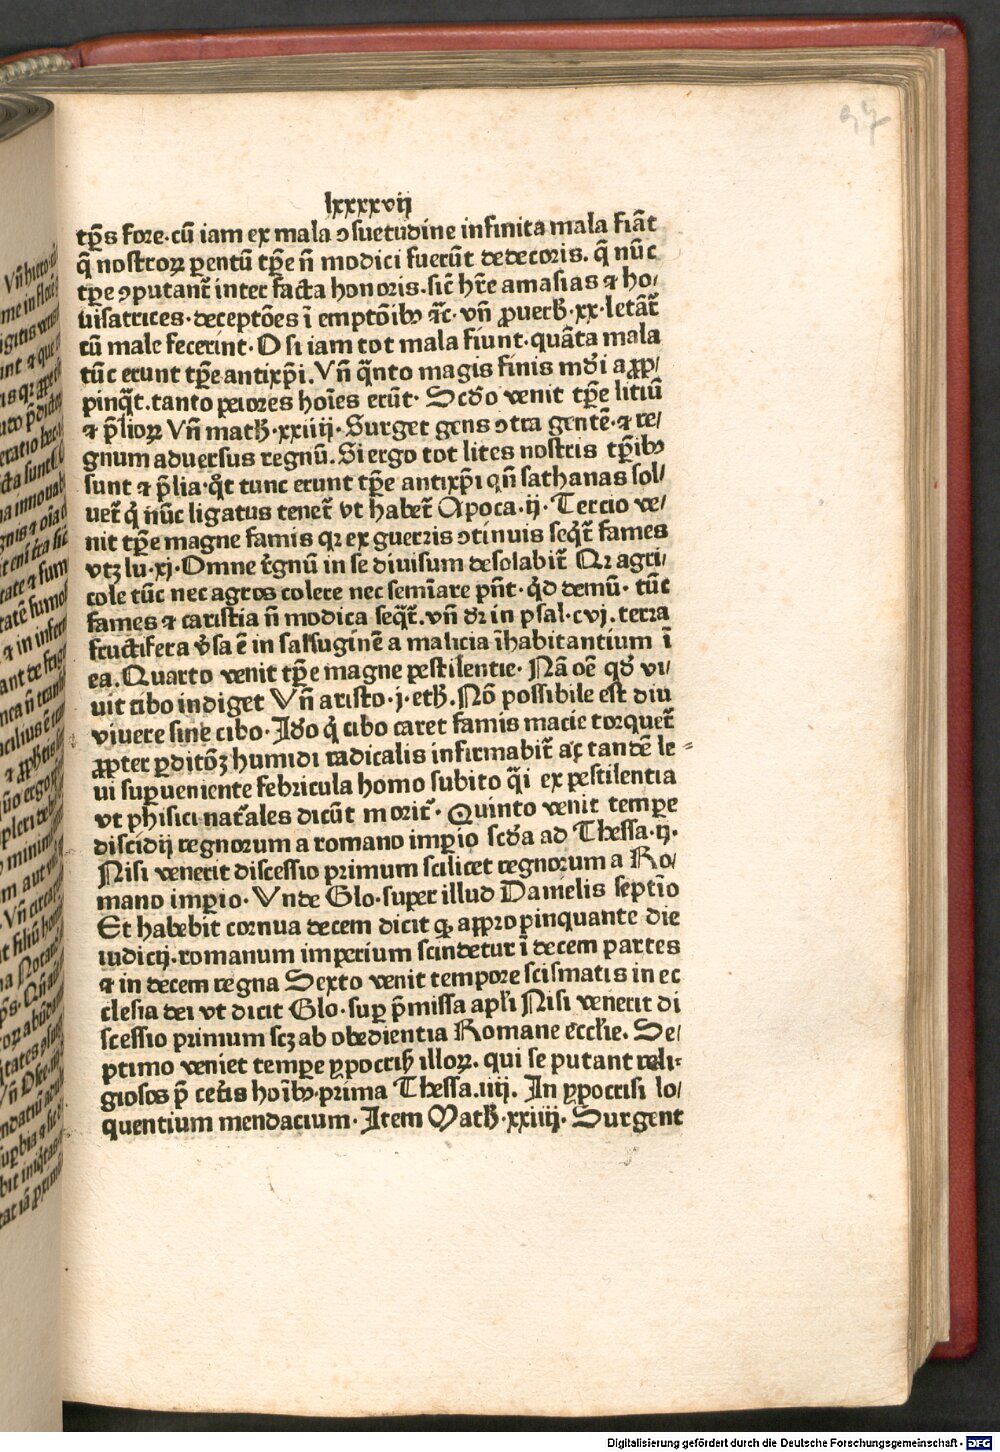 97
lxxxxvij
tp̄s fore · cū iam ex mala ↄsuetudine infinita mala fiāt
q̄ nostroꝝ parentū tp̄e nō modici fuerūt dedecoris. q̄ nūc
tp̄e ↄputant᷑ inter facta honoris · sic̄ hr̄e amasias ⁊ ho⸗
uisatrices · deceptōes ī emptōibꝰ ⁊c̄ · vn̄ ꝓuerb̄ · xx · letāt᷑
cū male fecerint · O si iam tot mala fiunt · quāta mala
tūc erunt tp̄e antixp̄i. Vn̄ q̄nto magis finis mūdi aꝓp⸗
pinq̄t. tanto peiores hoīes erūt · Scd̄o venit tp̄e litiū
⁊ p̄lioꝝ Vn̄ math̄ · xxiiij · Surget gens ↄtra gentē · ⁊ re⸗
gnum aduersus regnū. Si ergo tot lites nostris tp̄ibꝰ
sunt ⁊ p̄lia · q̄t tunc erunt tp̄e antixp̄i qn̄ sathanas sol⸗
uet᷑ q̄ nūc ligatus tenet᷑ vt habet᷑ Apoca · ij · Tercio ve⸗
nit tp̄e magne famis qꝛ ex guerris ↄtinuis seq̄t᷑ fames
vtꝫ lu · xj · Omne r̄gnū in se diuisum desolabit᷑ Qꝛ agri⸗
cole tūc nec agros colere nec semīare pn̄t · q̄d demū · tūc
fames ⁊ caristia n̄ modica seq̄t᷑. vn̄ dꝛ in psal · cvj . terra
fructifera v̄sa ē in salsuginē a malicia īhabitantium ī
ea. Quarto venit tp̄e magne pestilentie · Nā oē qd̄ vi⸗
uit cibo indiget Vn̄ aristo · j · eth̄. Nō possibile est diu
viuere sine cibo · Id̄o q̄ cibo caret famis macie torquet᷑
ꝓpter ꝑditōꝫ humidi radicalis infirmabit᷑ ac̄ tandē le⸗
ui supueniente febricula homo subito q̄i ex pestilentia
vt phisici nat᷑ales dicūt morit᷑ · Quinto venit tempe
discidij regnorum a romano impio scd̄a ad Thessa · ij ·
Nisi venerit discessio primum scilicet regnorum a Ro⸗
mano impio · Vnde Glo · super illud Danielis septīo
Et habebit cornua decem dicit ꝙ appropinquante die
iudicij . romanum imperium scindetur ī decem partes
⁊ in decem regna Sexto venit tempore scismatis in ec
clesia dei vt dicit Glo · sup p̄missa apl̄i Nisi venerit di
scessio primum scꝫ ab obedientia Romane eccl̄ie. Se⸗
ptimo veniet tempe ypocrib̄ illoꝝ. qui se putant reli⸗
giosos p̄ cet̄is hoībꝰ · prima Thessa. iiij. In ypocrisi lo⸗
quentium mendacium · Item Math̄ · xxiiij · Surgent
Digitalisierung gefördert durch die Deutsche Forschungsgemeinschaft - DFG